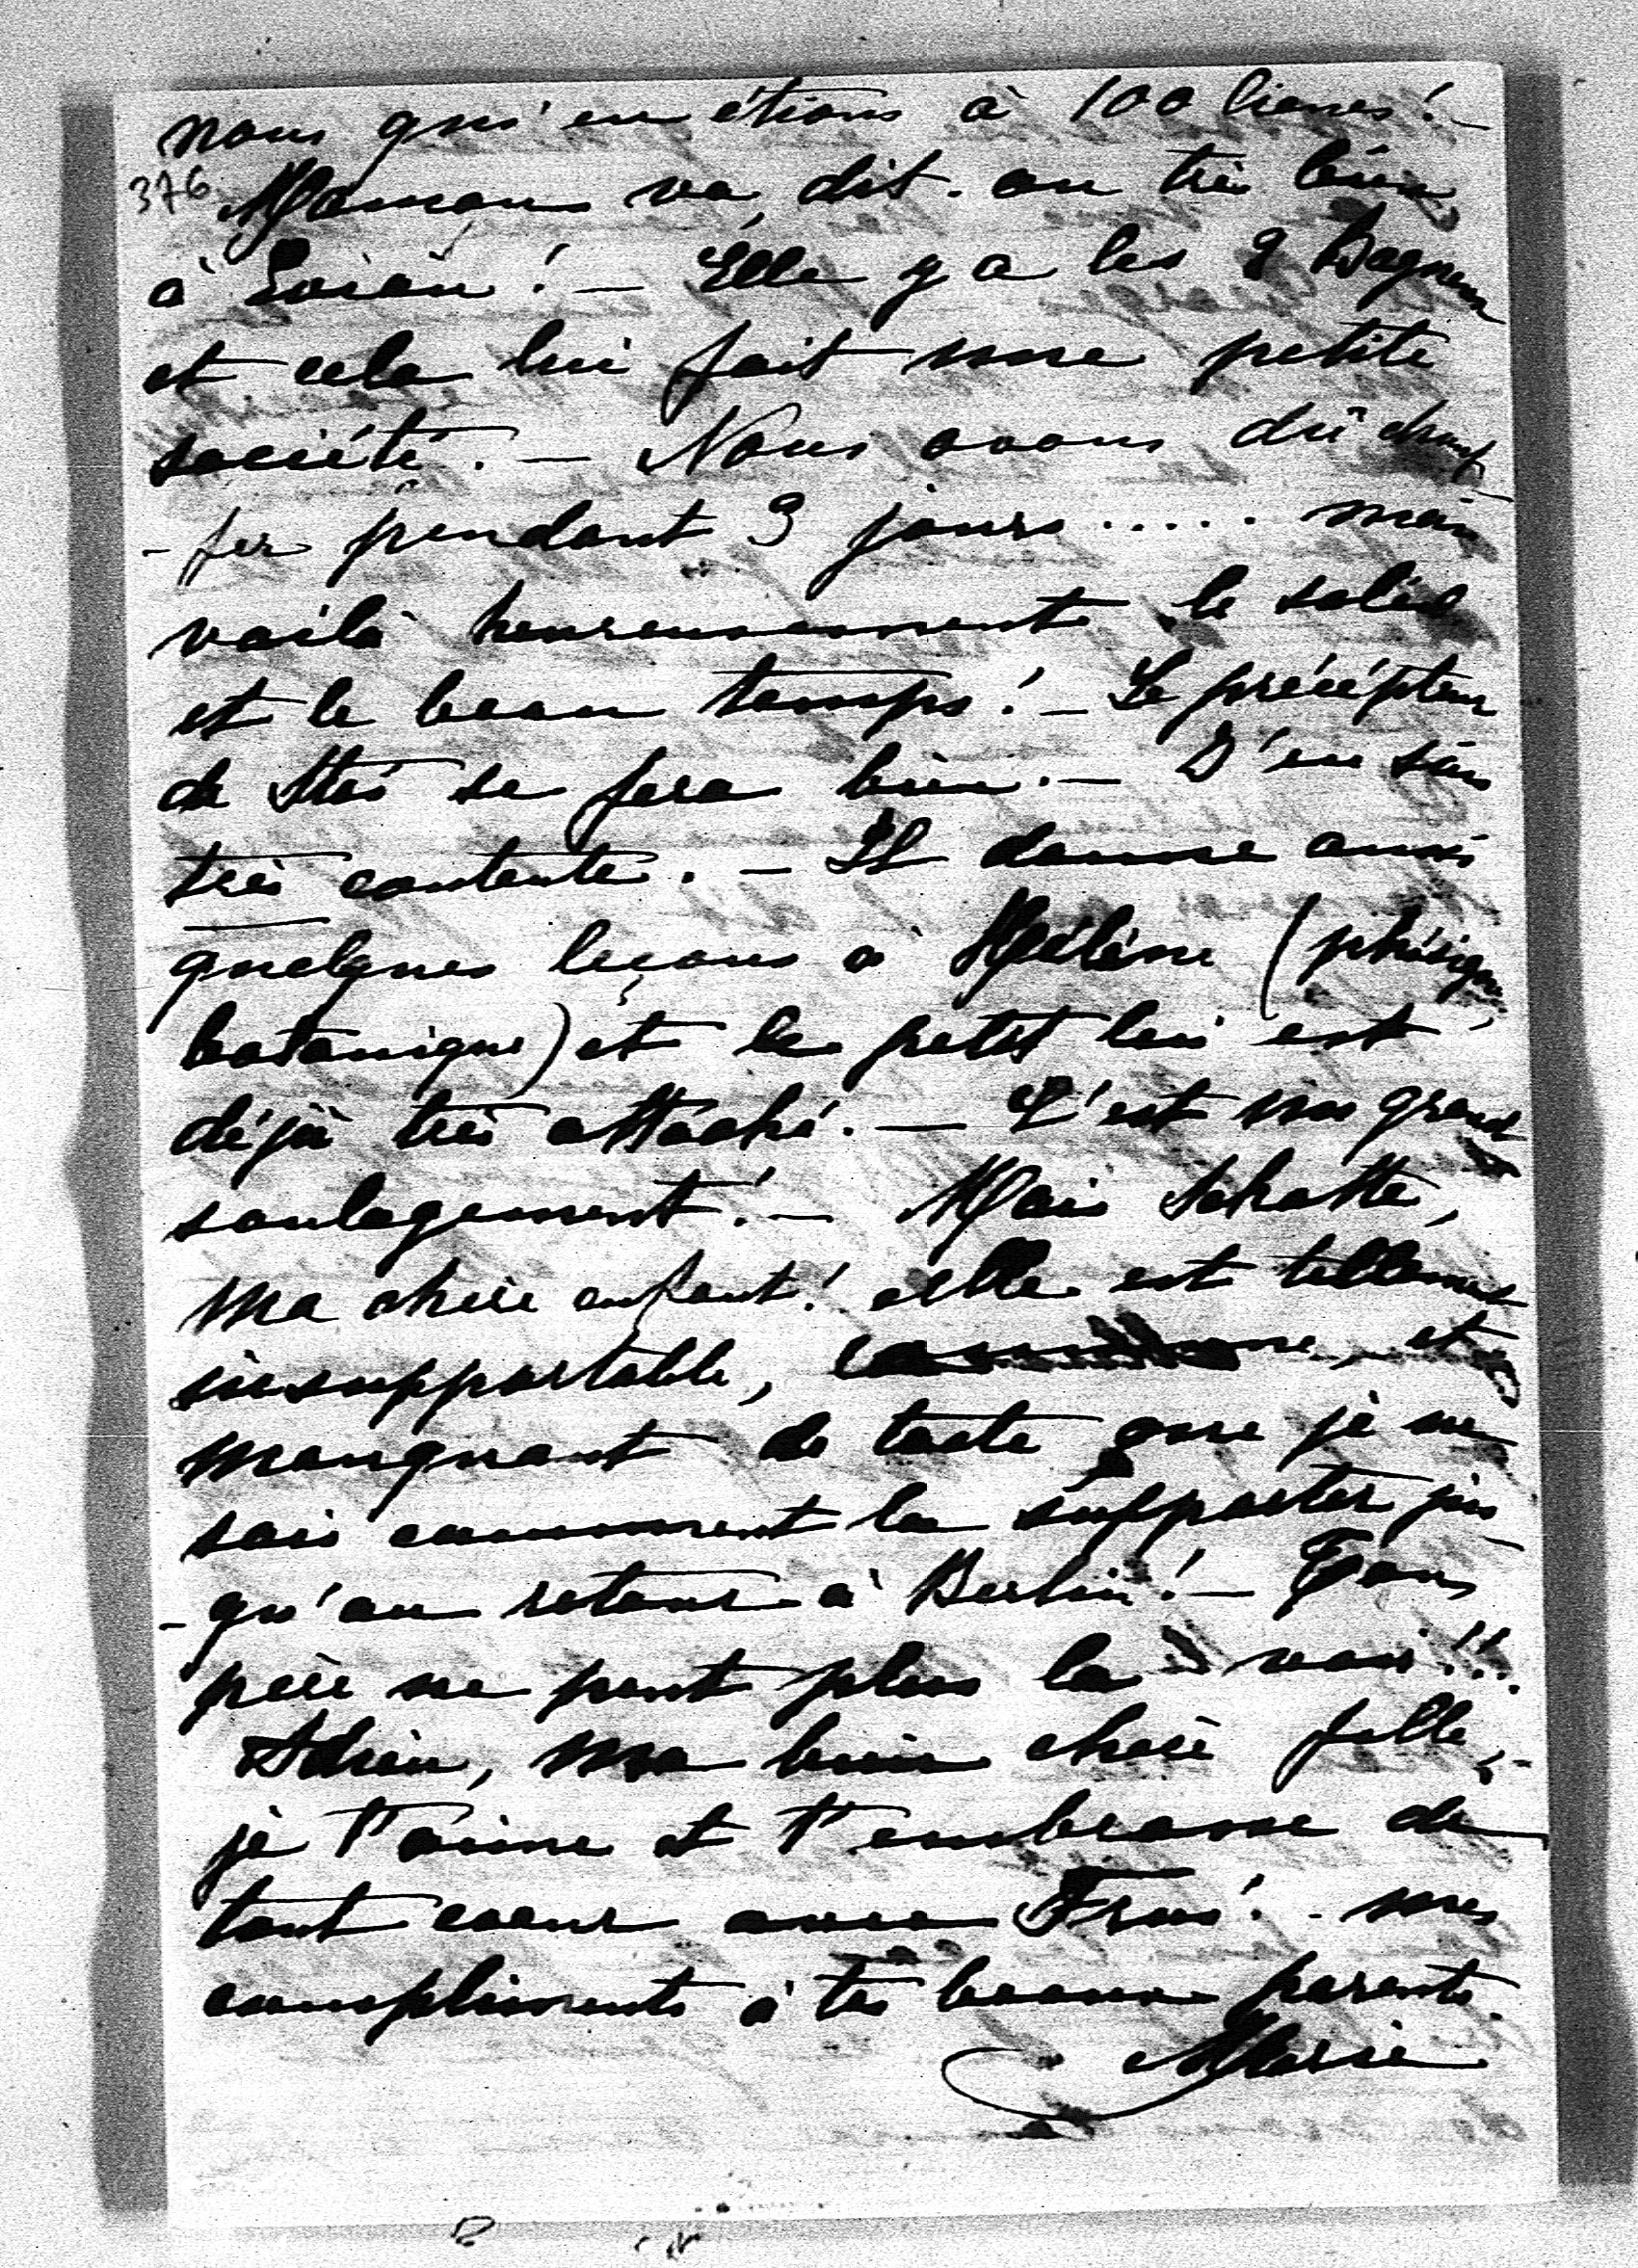 nous qui en étions à 100 lieues! –
376
Maman va, dit-on très bien
à Evian! – Elle y a les
et cela lui fait une petite
société. – Nous avons dû chauf
-fer pendant 3 jours ..... mais
voilà heureusement le soleil
et le beau temps! – Le précépteur
de se fera bien. – J'en suis
très contente. – Il donne aussi
quelques leçons à Hélène (phisique
botanique) et le petit lui est
déjà très attaché. – C'est un grand
soulagement! – Mais Schatte,
ma chère enfant! elle est tellement
insupportable, commune, et
manquant de tacte que je ne
sais comment la supporter jus
-qu'au retour à Berlin! – Ton
père ne peut plus la voir!!.
Adieu, ma bien chère fille, -
je t'aime et t'embrasse de
tout coeur avec - mes
compliments à tes beaux parents.
Marie